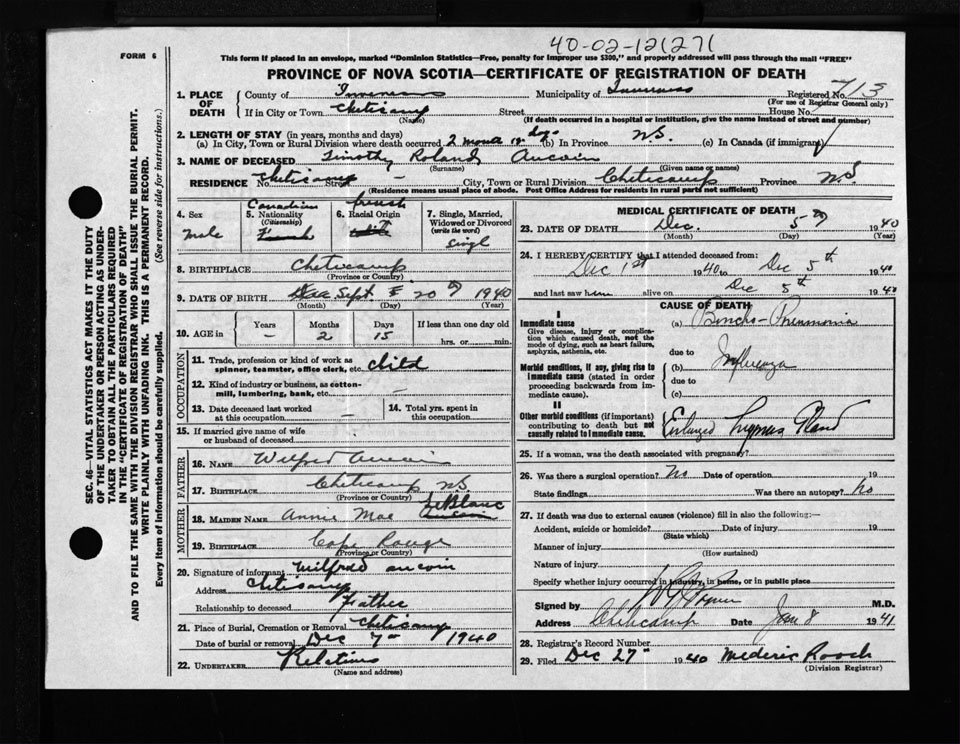 40-02-12127(
FORM 6
This form if placed in an envelope, marked "Dominion Statistics—Free, penalty for improper use $300," and properly addressed will pass through the mail "FREE"
PROVINCE OF NOVA SCOTIA—CERTIFICATE OF REGISTRATION OF DEATH
1. PLACE OF DEATH
County of Inverness Municipality of Inverness Registered No. 713
(For use of Registrar General only)
If in City or Town Cheticamp Street House No.
(Name) (If death occurred in a hospital or institution, give the name instead of street and number)
2. LENGTH OF STAY (in years, months and days)
(a) In City, Town or Rural Division where death occurred 2 month 15 dys (b) In Province N.S. (c) In Canada (if immigrant)
3. NAME OF DECEASED Timothy Roland Aucoin
(Surname) (Given name or names)
RESIDENCE No. Cheticamp Street - City, Town or Rural Division Cheticamp Province N.S
(Residence means usual place of abode. Post Office Address for residents in rural parts not sufficient)
4. Sex male
5. Nationality (Citizenship) Canadian French
6. Racial Origin french
7. Single, Married, Widowed or Divorced (write the word) singl
8. BIRTHPLACE Cheticamp
(Province or Country)
9. DATE OF BIRTH Sept 20 1940
(Month) (Day) (Year)
10. AGE in
Years - Months 2 Days 15 If less than one day old hrs. or min.
OCCUPATION
11. Trade, profession or kind of work as spinner, teamster, office clerk, etc. child
12. Kind of industry or business, as cotton-mill, lumbering, bank, etc. -
13. Date deceased last worked at this occupation -
14. Total yrs. spent in this occupation
15. If married give name of wife or husband of deceased
FATHER
16. NAME Wilfred Aucoin
17. BIRTHPLACE Cheticamp N.S.
(Province or Country)
MOTHER
18. MAIDEN NAME Annie Mae LeBlanc Aucoin
19. BIRTHPLACE Cape Rouge
(Province or Country)
20. Signature of informant Wilfred Aucoin
Address Cheticamp
Relationship to deceased Father
21. Place of Burial, Cremation or Removal Cheticamp
Date of burial or removal Dec 7 - 1940
22. UNDERTAKER Relatives
(Name and address)
MEDICAL CERTIFICATE OF DEATH
23. DATE OF DEATH Dec. 5 1940
(Month) (Day) (Year)
24. I HEREBY CERTIFY that I attended deceased from:
Dec 1st 1940 to Dec 5th 1940
and last saw him alive on Dec 5th 1940
CAUSE OF DEATH
I
Immediate cause
Give disease, injury or complication which caused death, not the mode of dying, such as heart failure, asphyxia, asthenia, etc.
(a) Broncho-Pneumonia
due to
Morbid conditions, if any, giving rise to immediate cause (stated in order proceeding backwards from immediate cause).
(b) Influenza
due to
(c)
II
Other morbid conditions (if important) contributing to death but not causally related to immediate cause.
Enlarged Thymus Gland
25. If a woman, was the death associated with pregnancy?
26. Was there a surgical operation? No Date of operation 19
State findings Was there an autopsy? No
27. If death was due to external causes (violence) fill in also the following:—
Accident, suicide or homicide? Date of injury 19
(State which)
Manner of injury
(How sustained)
Nature of injury
Specify whether injury occurred in industry, in home, or in public place
Signed by M.D.
Address Cheticamp Date Jan 8 1941
28. Registrar's Record Number
29. Filed Dec 27 1940 Mederic Roach
(Division Registrar)
SEC. 46—VITAL STATISTICS ACT MAKES IT THE DUTY
OF THE UNDERTAKER OR PERSON ACTING AS UNDER-
TAKER TO OBTAIN ALL THE PARTICULARS REQUIRED
IN THE "CERTIFICATE OF REGISTRATION OF DEATH"
AND TO FILE THE SAME WITH THE DIVISION REGISTRAR WHO SHALL ISSUE THE BURIAL PERMIT.
WRITE PLAINLY WITH UNFADING INK. THIS IS A PERMANENT RECORD.
Every item of information should be carefully supplied. (See reverse side for instructions.)